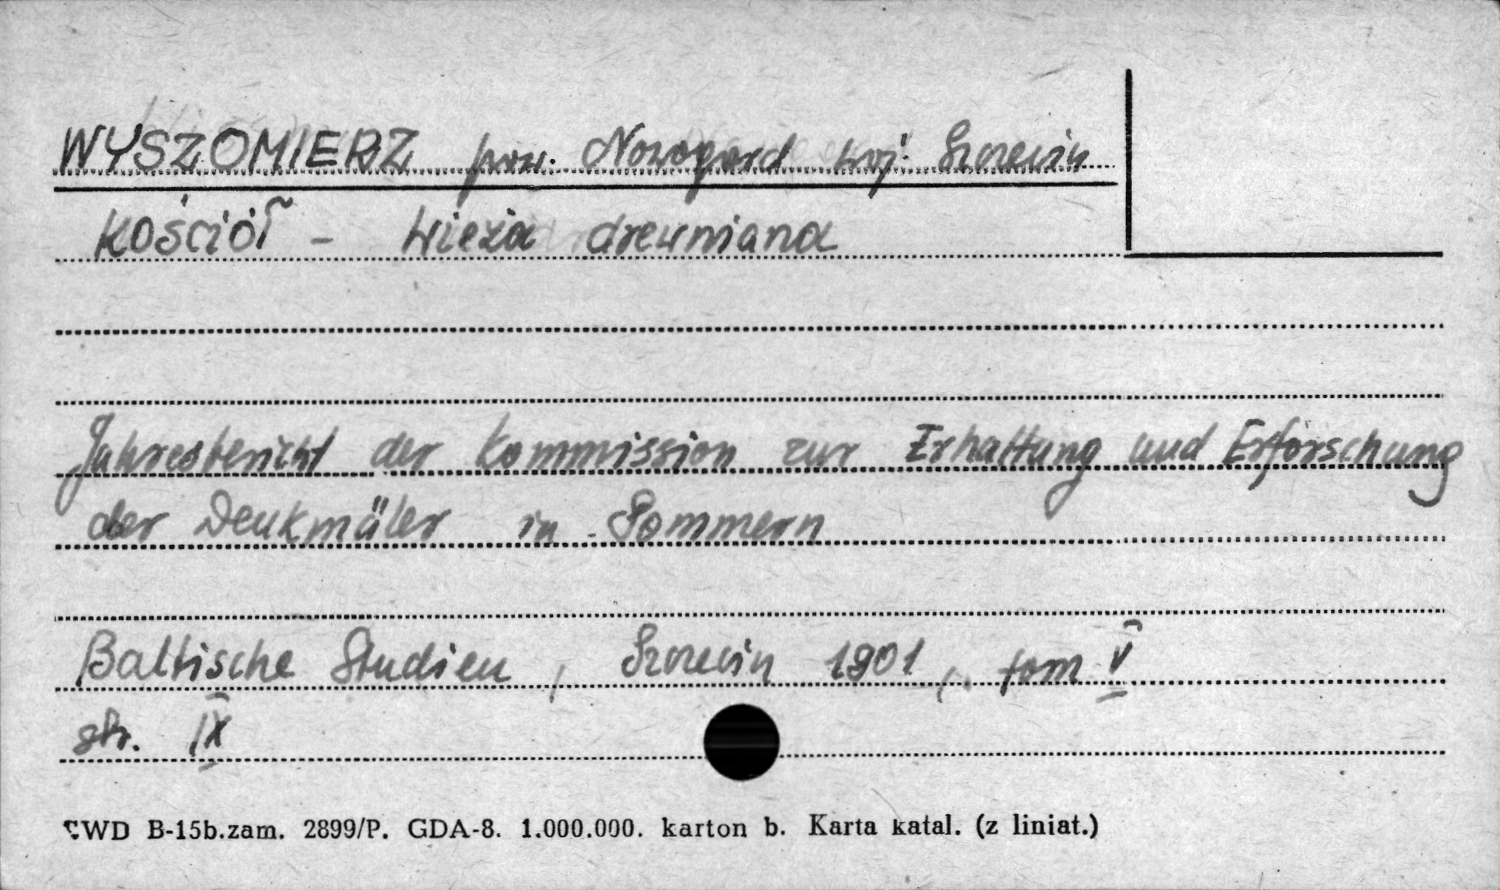 WYSZOMIERZ pow. Nowogard woj. Szczecin
KOŚCIÓŁ - Wieża drewniana
Jahresbericht der Kommission zur Erhaltung und Erforschung
der Denkmäler in Pommern
Baltische Studien, Szczecin 1901, tom V
str. IX
CWD B-15b.zam. 2899/P. GDA-8. 1.000.000. karton b. Karta katal. (z liniat.)